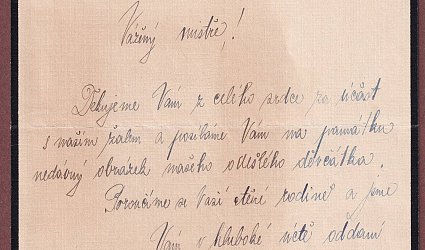 Vážený mistře!
Děkujeme Vám z celého srdce za účast
s naším žalem a posíláme Vám na památku
nedávný obrázek našeho odešlého děvčátka.
Poroučíme se Vaší ctěné rodině a jsme
Vám v hluboké úctě oddaní